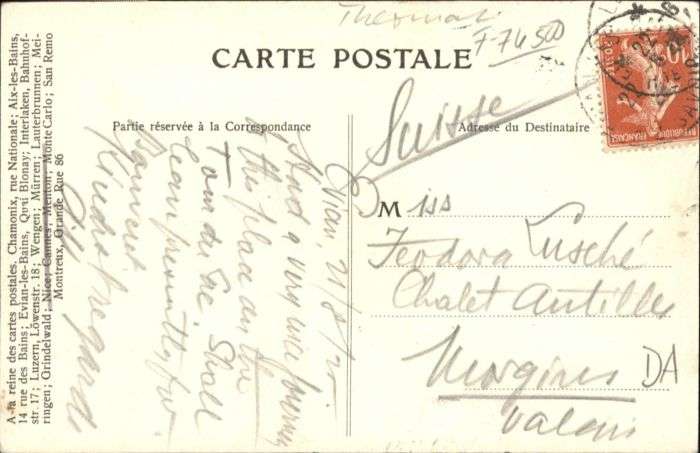 CARTE POSTALE
F 74500
Partie réservée à la Correspondance
Adresse du Destinataire
A la reine des cartes postales, Chamonix, rue Nationale; Aix-les-Bains,
14 rue des Bains; Evian-les-Bains, Quai Blonay; Interlaken, Bahnhof-
str. 17; Luzern, Löwenstr. 18; Wengen; Mürren; Lauterbrunnen; Mei-
ringen; Grindelwald; Nice; Cannes; Menton; Monte Carlo; San Remo
Montreux, Grande Rue 86
Evian 21/8/20
Had a very nice
of this place on the
Tour du Sac. Shall
leave presently for
Kindest regards
Suisse
Miss
Feodora Lusché
Chalet Antilles
Morgins
Valais
DA
10
POSTES
FRANÇAISE